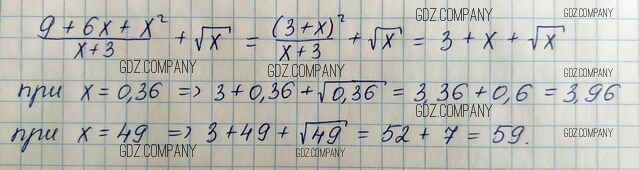 (9 + 6x + x²)/(x+3) + √x = (3+x)²/(x+3) + √x = 3 + x + √x
при x = 0,36 => 3 + 0,36 + √0,36 = 3,36 + 0,6 = 3,96
при x = 49 => 3 + 49 + √49 = 52 + 7 = 59.
GDZ.COMPANY
GDZ.COMPANY
GDZ.COMPANY
GDZ.COMPANY
GDZ.COMPANY
GDZ.COMPANY
GDZ.COMPANY
GDZ.COMPANY
GDZ.COMPANY
GDZ.COMPANY